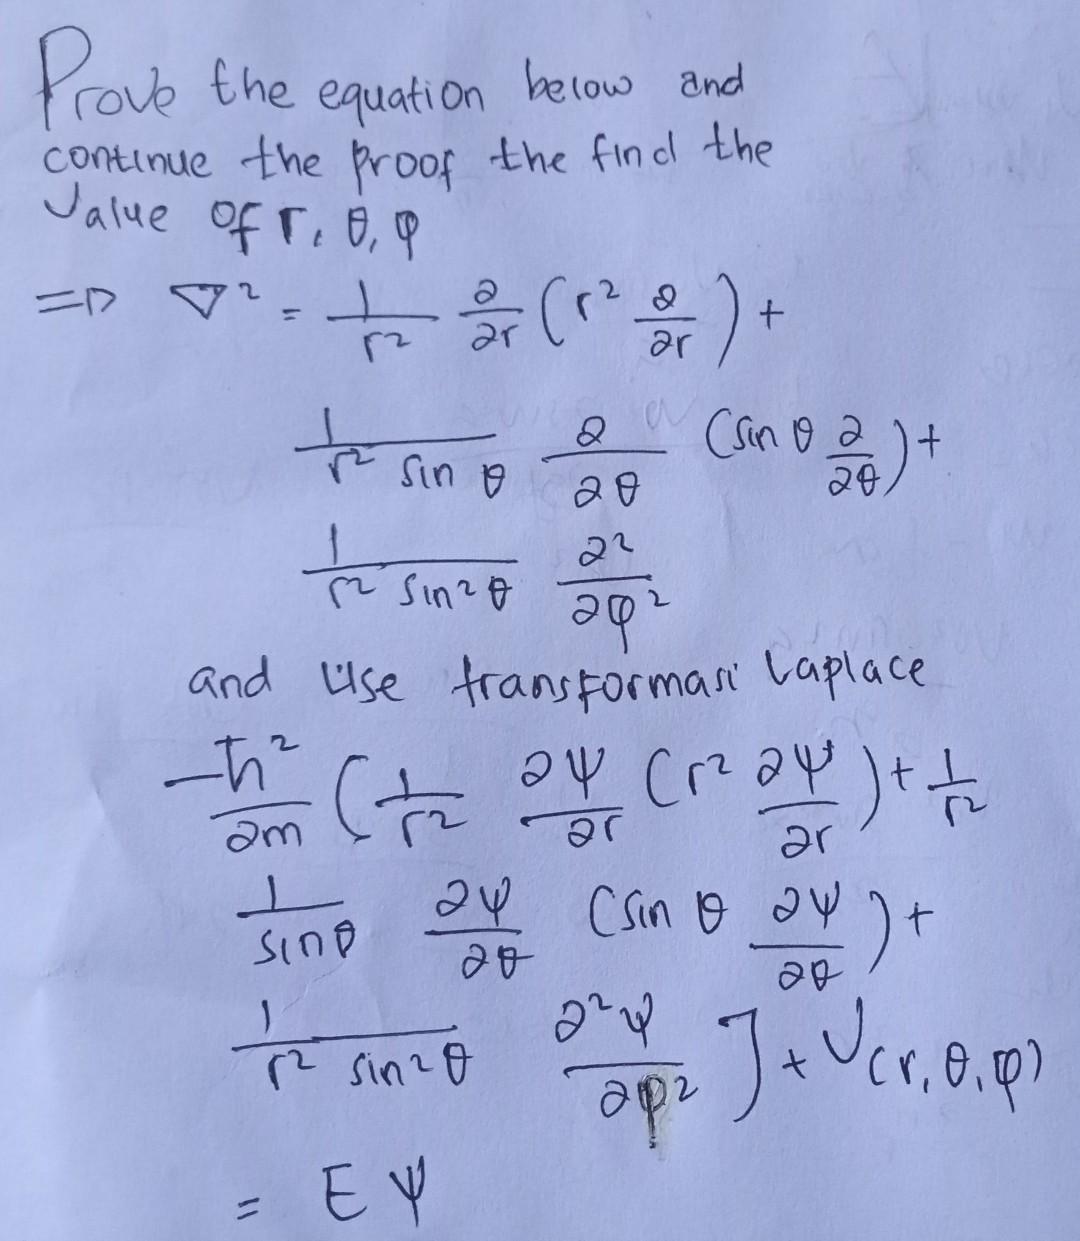 Prove the equation below and
continue the proof the find the
Value of r, θ, φ
=> ∇² = 1/r² ∂/∂r (r² ∂/∂r) +
1/(r² sin θ) ∂/∂θ (sin θ ∂/∂θ) +
1/(r² sin²θ) ∂²/∂φ²
and Use transformasi Laplace
-ħ²/2m (1/r² ∂ψ/∂r (r² ∂ψ/∂r) + 1/r²
1/sinθ ∂ψ/∂θ (sin θ ∂ψ/∂θ) +
1/(r² sin²θ) ∂²ψ/∂φ² ] + V(r, θ, φ)
= E ψ